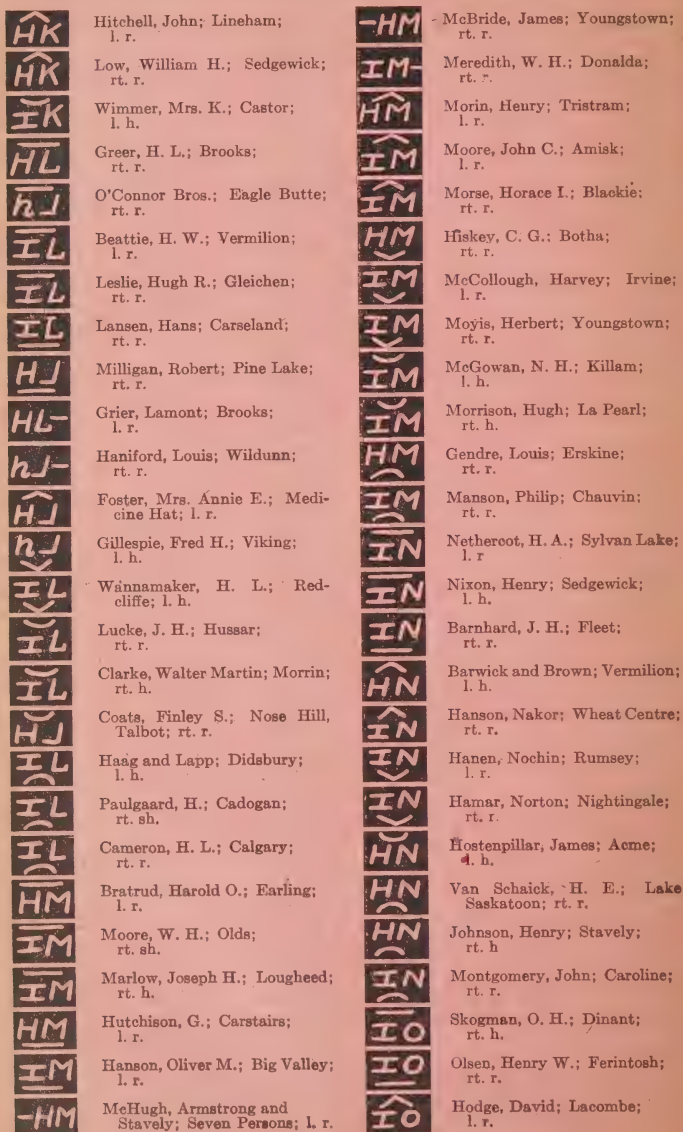 HK Hitchell, John; Lineham;
l. r.
HK Low, William H.; Sedgewick;
rt. r.
HK Wimmer, Mrs. K.; Castor;
l. h.
HL Greer, H. L.; Brooks;
rt. r.
O'Connor Bros.; Eagle Butte;
rt. r.
HL Beattie, H. W.; Vermilion;
l. r.
HL Leslie, Hugh R.; Gleichen;
rt. r.
HL Lansen, Hans; Carseland;
rt. r.
HJ Milligan, Robert; Pine Lake;
rt. r.
HL- Grier, Lamont; Brooks;
l. r.
hJ- Haniford, Louis; Wildunn;
rt. r.
HJ Foster, Mrs. Annie E.; Medi-
cine Hat; l. r.
Gillespie, Fred H.; Viking;
l. h.
HL Wannamaker, H. L.; Red-
cliffe; l. h.
HL Lucke, J. H.; Hussar;
rt. r.
HL Clarke, Walter Martin; Morrin;
rt. h.
HJ Coats, Finley S.; Nose Hill,
Talbot; rt. r.
HL Haag and Lapp; Didsbury;
l. h.
HL Paulgaard, H.; Cadogan;
rt. sh.
HL Cameron, H. L.; Calgary;
rt. r.
HM Bratrud, Harold O.; Earling;
l. r.
HM Moore, W. H.; Olds;
rt. sh.
HM Marlow, Joseph H.; Lougheed;
rt. h.
HM Hutchison, G.; Carstairs;
l. r.
HM Hanson, Oliver M.; Big Valley;
l. r.
-HM McHugh, Armstrong and
Stavely; Seven Persons; l. r.
-HM McBride, James; Youngstown;
rt. r.
HM- Meredith, W. H.; Donalda;
rt. r.
HM Morin, Henry; Tristram;
l. r.
HM Moore, John C.; Amisk;
l. r.
HM Morse, Horace I.; Blackie;
rt. r.
HM Hiskey, C. G.; Botha;
rt. r.
HM McCollough, Harvey; Irvine;
l. r.
HM Moyis, Herbert; Youngstown;
rt. r.
HM McGowan, N. H.; Killam;
l. h.
HM Morrison, Hugh; La Pearl;
rt. h.
HM Gendre, Louis; Erskine;
rt. r.
HM Manson, Philip; Chauvin;
rt. r.
HN Nethercot, H. A.; Sylvan Lake;
l. r
HN Nixon, Henry; Sedgewick;
l. h.
HN Barnhard, J. H.; Fleet;
rt. r.
HN Barwick and Brown; Vermilion;
l. h.
HN Hanson, Nakor; Wheat Centre;
rt. r.
HN Hanen, Nochin; Rumsey;
l. r.
HN Hamar, Norton; Nightingale;
rt. r.
HN Hostenpillar, James; Acme;
l. h.
HN Van Schaick, H. E.; Lake
Saskatoon; rt. r.
HN Johnson, Henry; Stavely;
rt. h
HN Montgomery, John; Caroline;
rt. r.
HO Skogman, O. H.; Dinant;
rt. h.
HO Olsen, Henry W.; Ferintosh;
rt. r.
HO Hodge, David; Lacombe;
l. r.